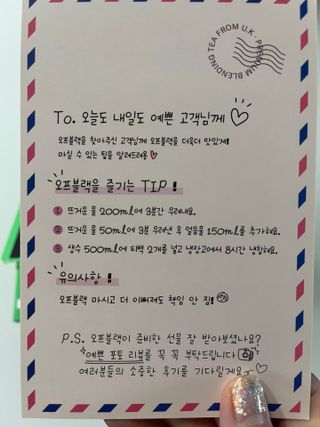 TEA FROM U.K - PREMIUM BLENDING
To. 오늘도 내일도 예쁜 고객님께
오프블랙을 찾아주신 고객님께 오프블랙을 더욱더 맛있게!
마실 수 있는 팁을 알려드려욤
오프블랙을 즐기는 TIP!
1 뜨거운 물 200ml에 3분간 우려내요.
2 뜨거운 물 50ml에 3분 우려낸 후 얼음물 150ml를 추가해요.
3 생수 500ml에 티백 2개를 넣고 냉장고에서 8시간 냉침해요.
유의사항!
오프블랙 마시고 더 이뻐져도 책임 안 짐!
P.S. 오프블랙이 준비한 선물 잘 받아보셨나요?
예쁜 포토 리뷰를 꼭 꼭 부탁드립니다
여러분들의 소중한 후기를 기다릴게요~